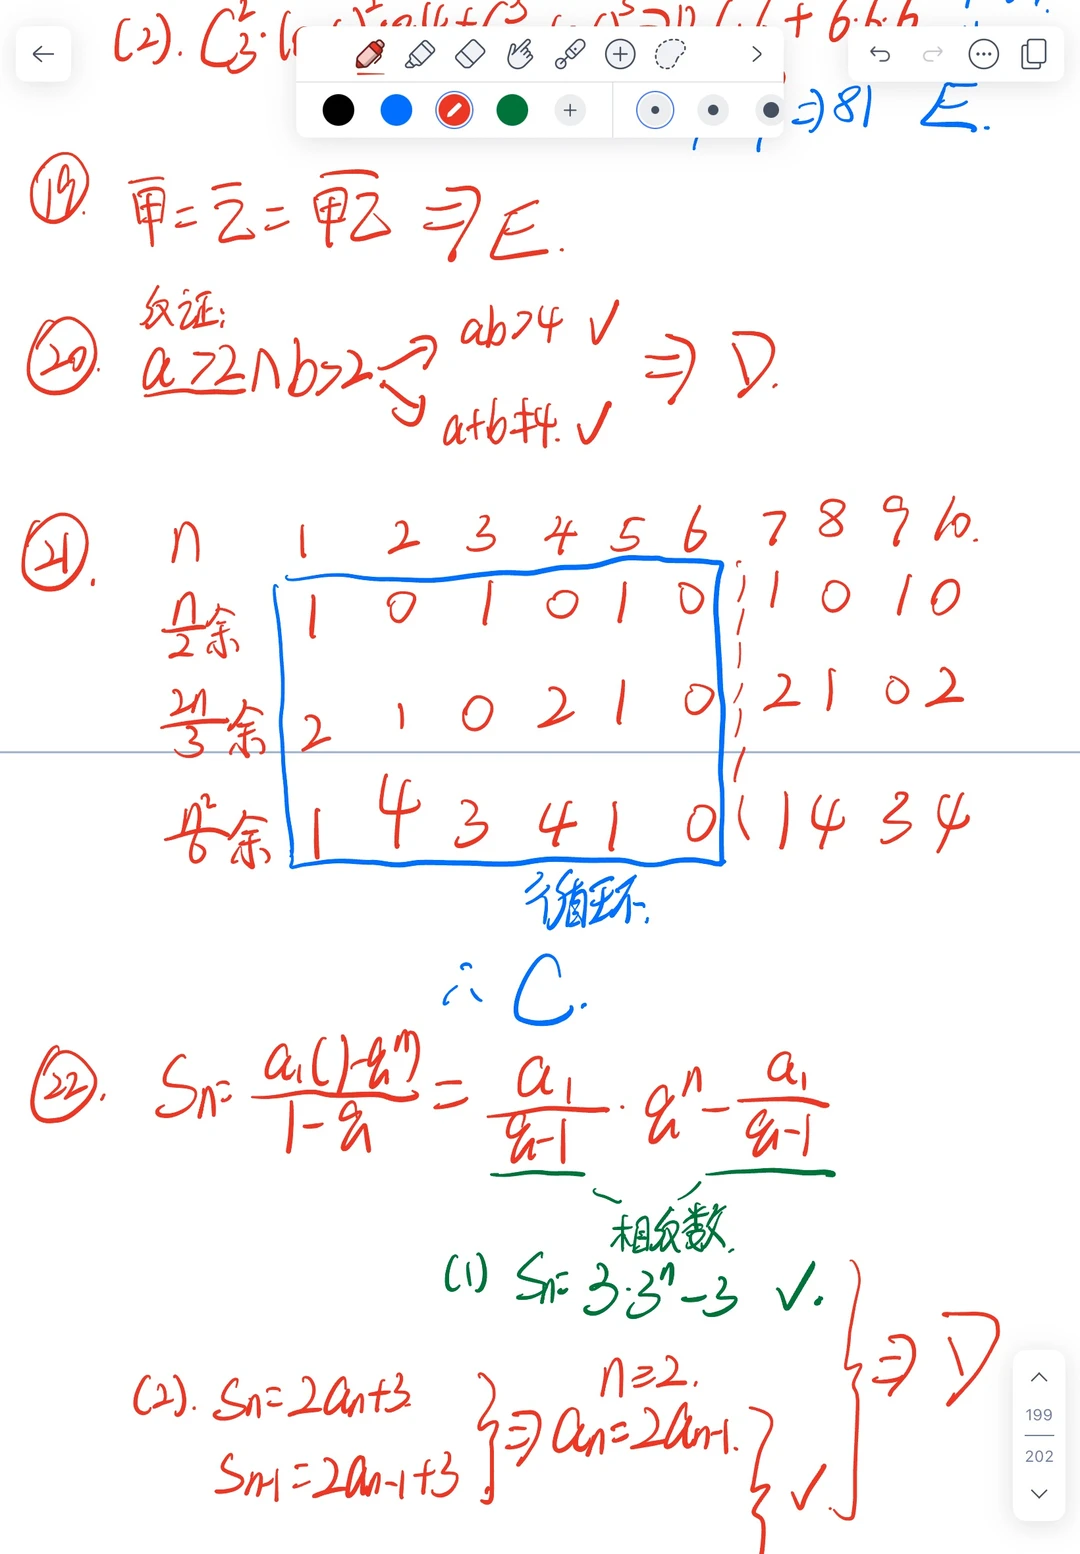 ⇒81 E.
⑲. 甲=乙=甲乙 ⇒ E.
反证:
⑳. a>2∧b>2
ab>4 ✓
a+b≠4. ✓
⇒ D.
㉑. n 1 2 3 4 5 6 7 8 9 10.
n/2 余 1 0 1 0 1 0 1 0 1 0
2n/3 余 2 1 0 2 1 0 2 1 0 2
n²/6 余 1 4 3 4 1 0 1 4 3 4
循环.
∴ C.
㉒. Sn= a₁(1-qⁿ)/(1-q) = a₁/(q-1) · qⁿ - a₁/(q-1)
相反数.
(1) Sn= 3·3ⁿ-3 ✓.
(2). Sn=2an+3.
Sn-1=2an-1+3
⇒ n≥2.
an=2an-1.
✓.
⇒ D
199
202